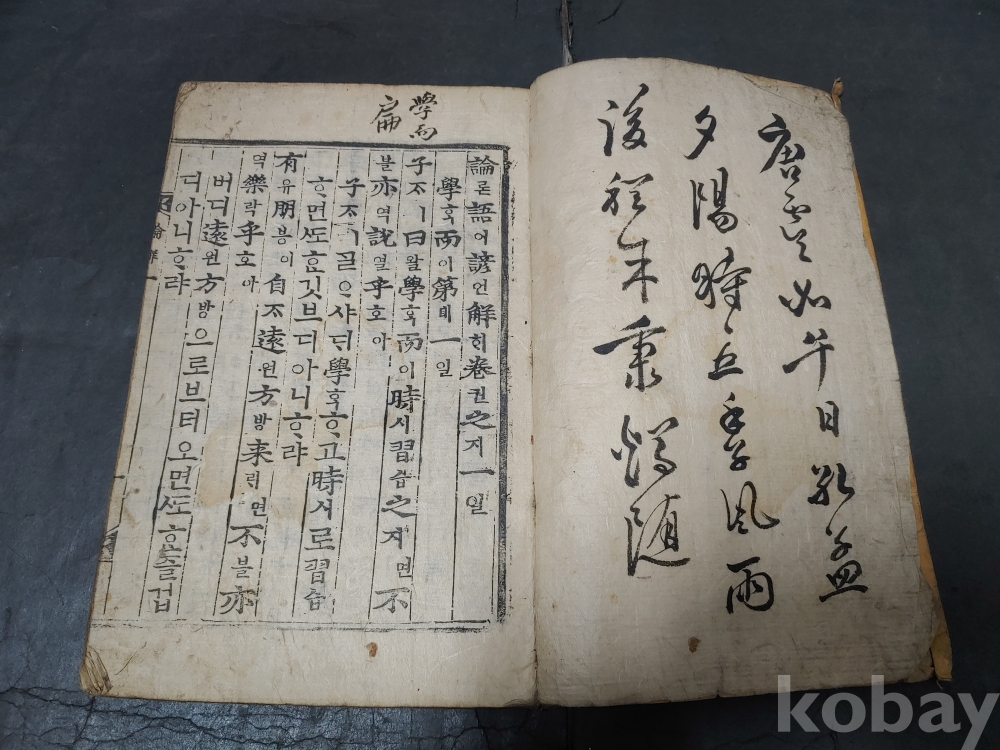 唐虞如午日孔孟
夕陽時五季風雨
後程朱秉燭隨
學而
扁
論론語어諺언解ᄒᆡ卷권之지一일
學ᄒᆞᆨ而이第뎨一일
子ᄌᆞㅣ曰왈學ᄒᆞᆨ而이時시習습之지면不
블亦역說열乎호아
子ᄌᆞㅣᄀᆞᆯᄋᆞ샤ᄃᆡ學ᄒᆞᆨᄒᆞ고時시로習습
ᄒᆞ면ᄯᅩᄒᆞᆫ깃브디아니ᄒᆞ랴
有유朋붕이自ᄌᆞ遠원方방來ᄅᆡ면不블亦
역樂락乎호아
버디遠원方방으로브터오면ᄯᅩᄒᆞᆫ즐겁
디아니ᄒᆞ랴
kobay